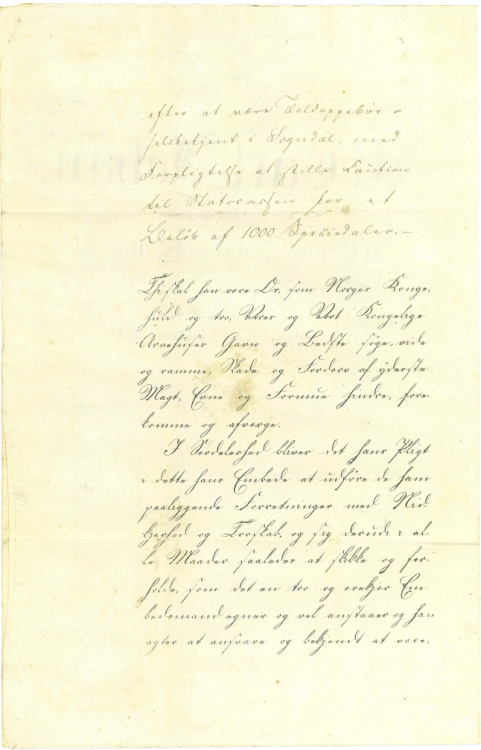 efter at være Toldoppebør-
selsbetjent i Sogndal, med
Forpligtelse at stille Caution
til Statscassen for et
Beløb af 1000 Speciedaler.—
Thi skal han være Os, som Norges Konge,
huld og tro, Vores og Vort Kongelige
Arvehuses Gavn og Bedste søge, vide
og ramme, Skade og Fordærv af yderste
Magt, Evne og Formue hindre, fore-
komme og afværge.
I Særdeleshed bliver det hans Pligt
i dette hans Embede at udføre de ham
paaliggende Forretninger med Nid-
kjerhed og Troskab, og sig derudi i al-
le Maader saaledes at skikke og for-
holde, som det en tro og ærekjær Em-
bedsmand egner og vel anstaaer og han
agter at ansvare og bekjendt at være.